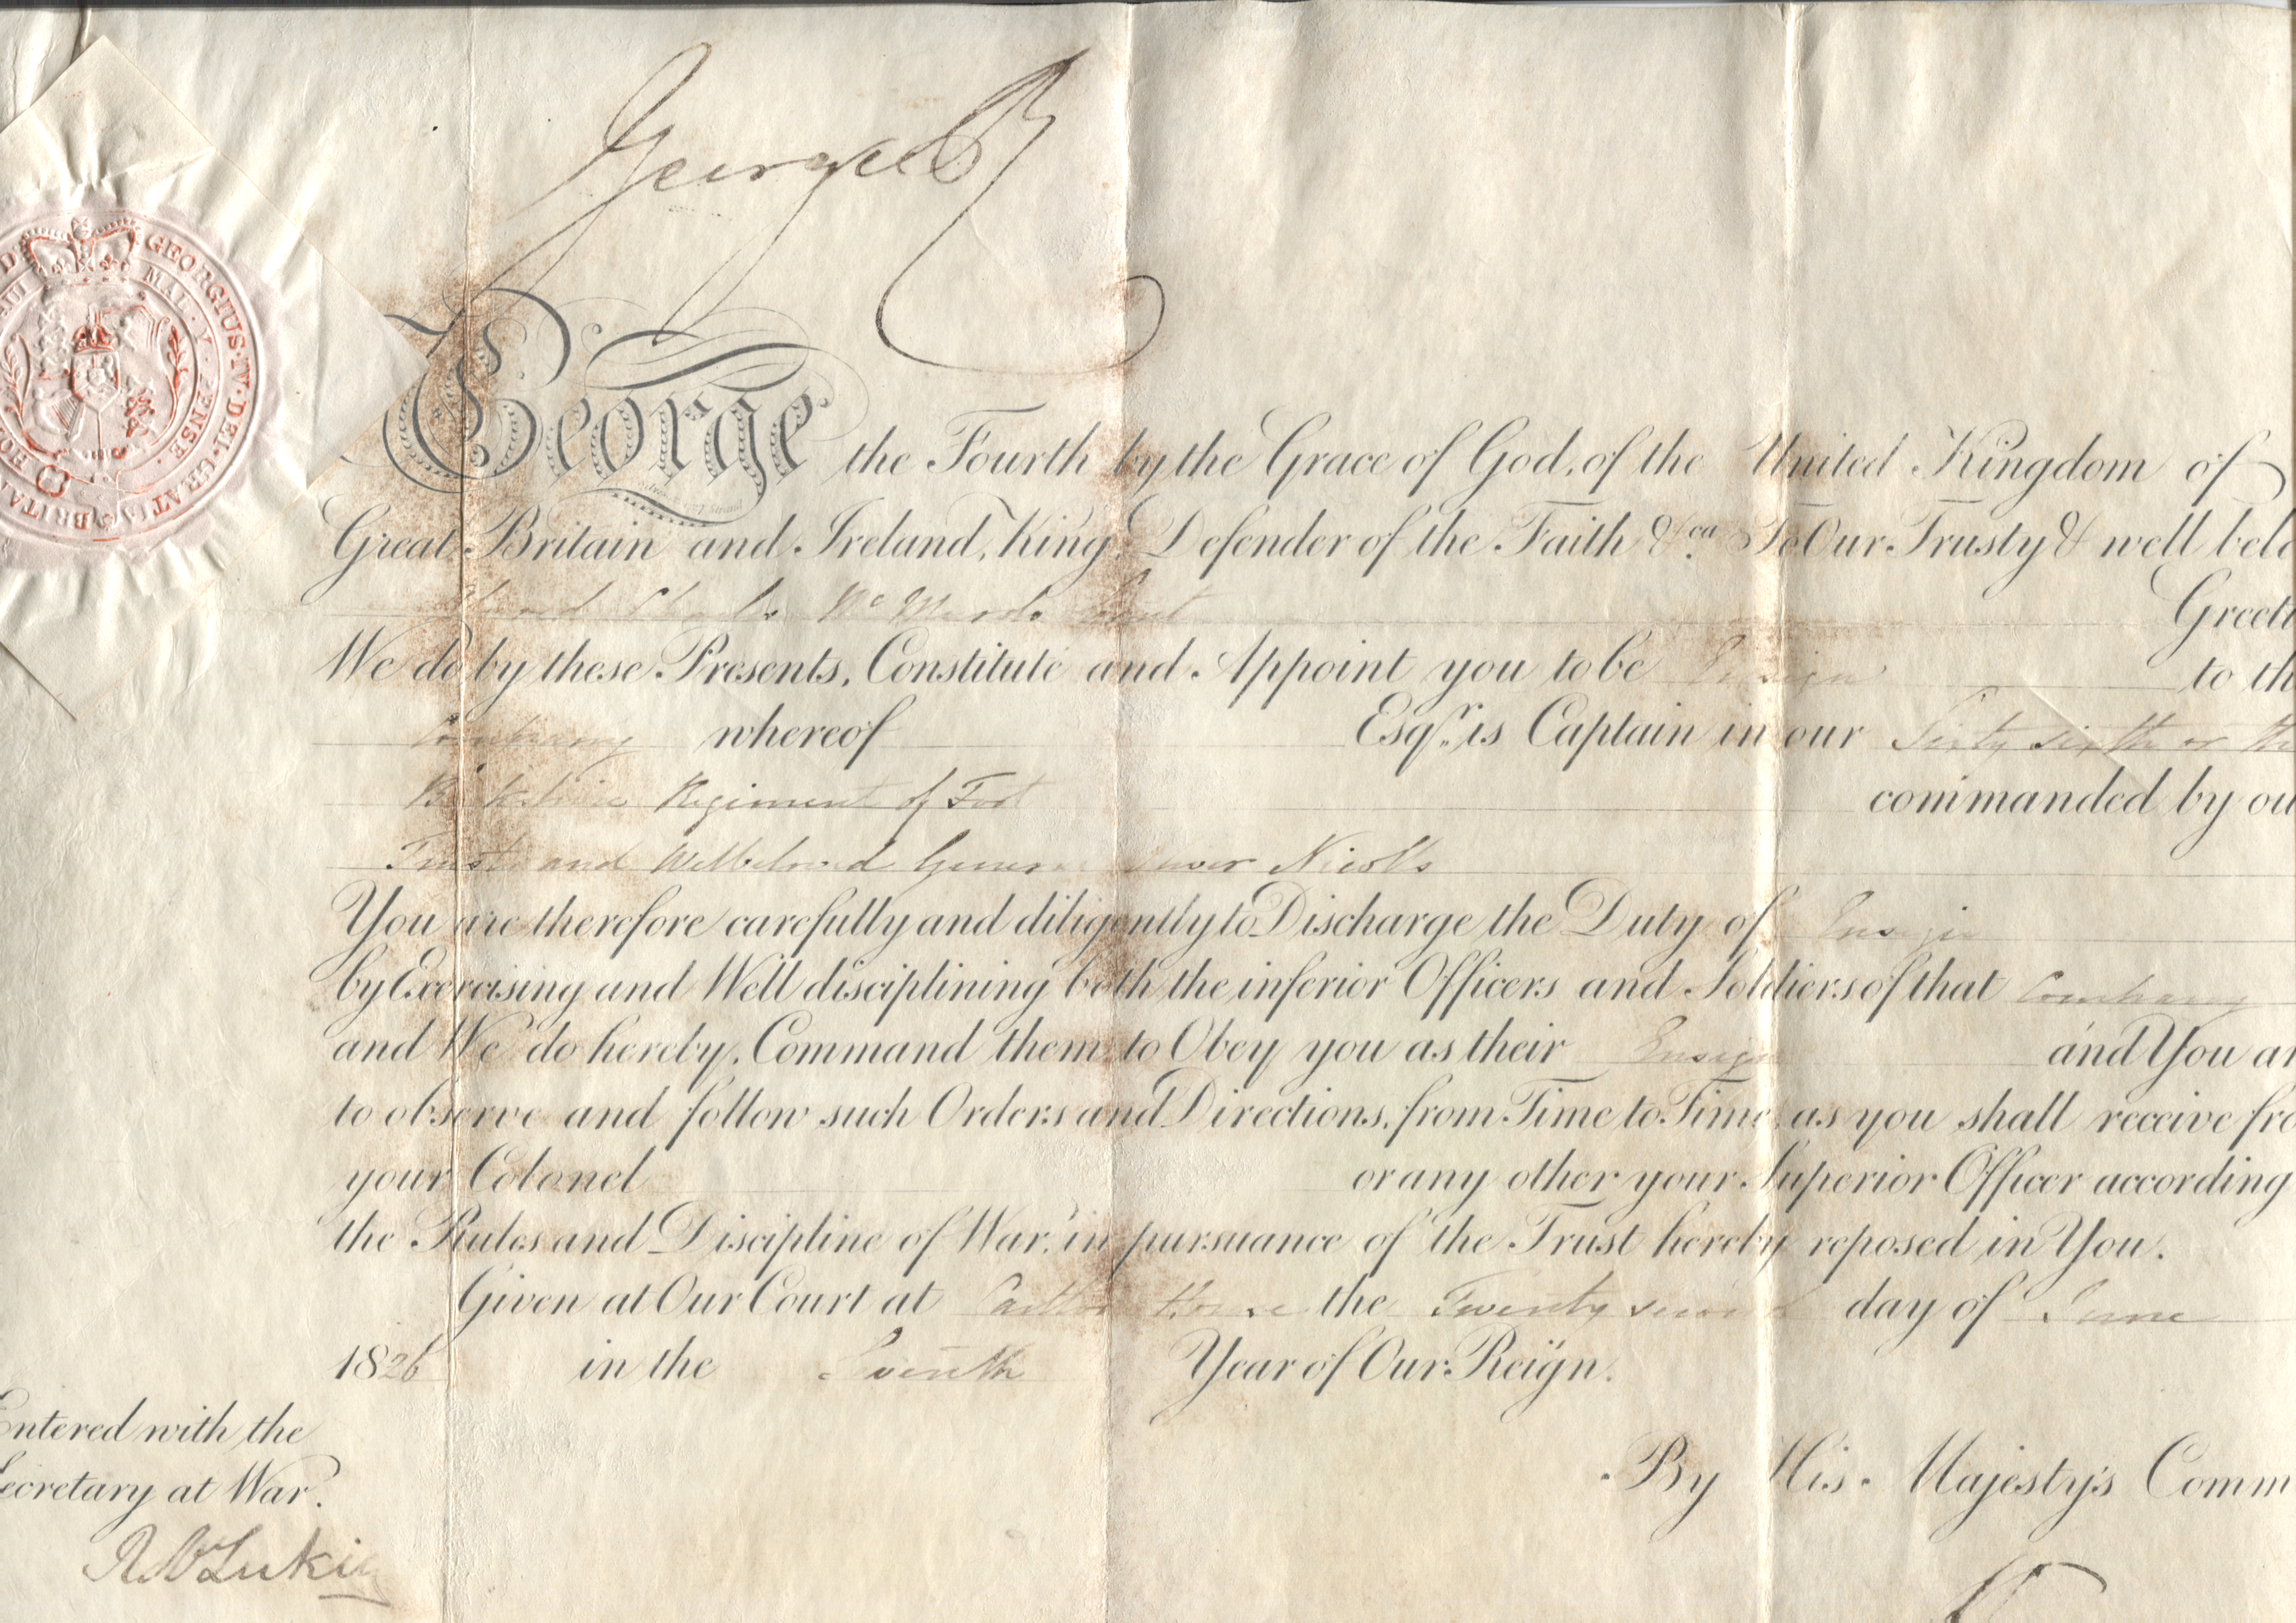 George R
George the Fourth by the Grace of God, of the United Kingdom of
Great Britain and Ireland, King, Defender of the Faith &ca To Our Trusty & well belo
Charles Greeti
We do by these Presents, Constitute and Appoint you to be Ensign to th
Company whereof Esqr. is Captain in our Sixty sixth or the
Berkshire Regiment of Foot commanded by ou
Trusty and Welbeloved General Oliver Nicolls
You are therefore carefully and diligently to Discharge the Duty of Ensign
by Exercising and Well disciplining both the inferior Officers and Soldiers of that Company
and We do hereby Command them to Obey you as their Ensign and You ar
to observe and follow such Orders and Directions, from Time to Time, as you shall receive fro
your Colonel or any other your Superior Officer according
the Rules and Discipline of War, in pursuance of the Trust hereby reposed in You.
Given at Our Court at Carlton House the Twenty second day of June
1826 in the Seventh Year of Our Reign.
By His Majesty's Comm
Entered with the
Secretary at War.
GEORGIUS·IV·DEI·GRATIA BRITAN
HONI MAL·Y·PENSE·